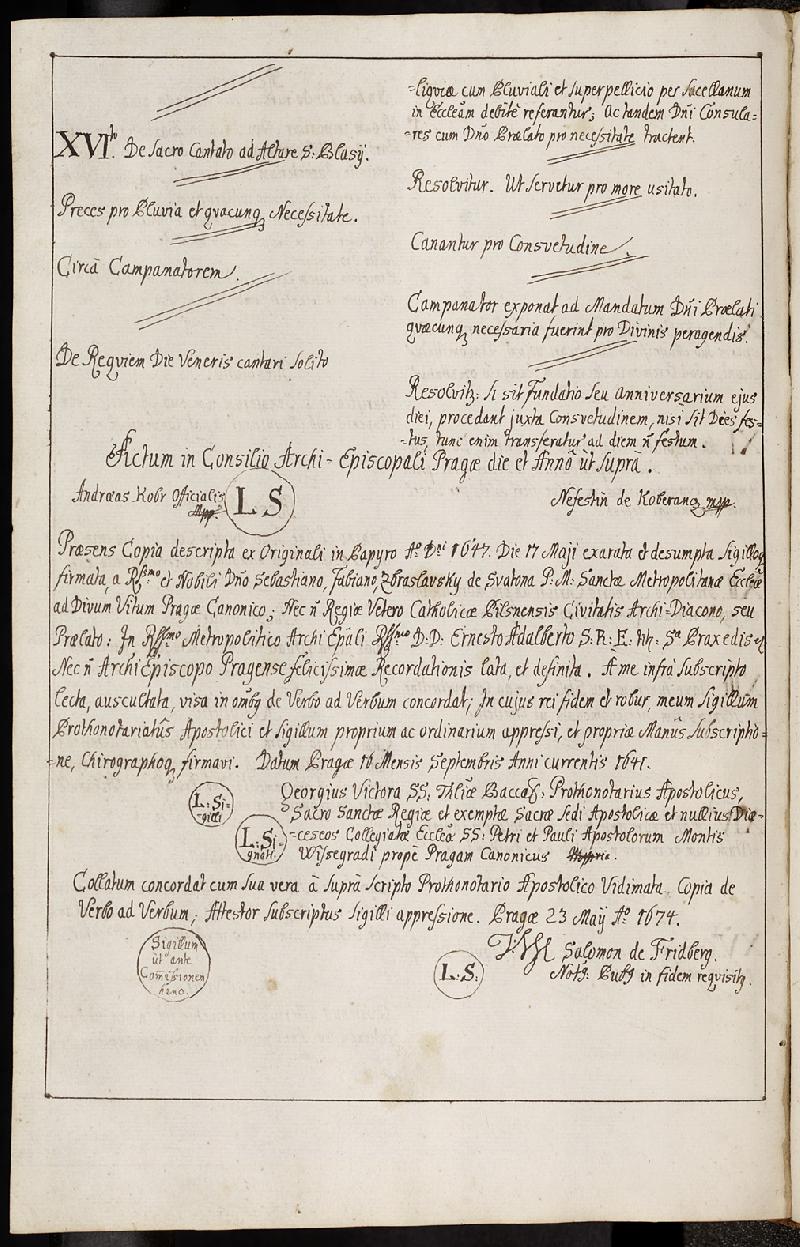 XVI.to De Sacro Cantato ad Altare S: Blasij.
Preces pro Pluvia et qvacunq3 Necessitate.
Circà Campanatorem.
De Reqviem Die Veneris cantari solito
-liqviæ cum Pluviali et superpellicio per Sacellanum
in Eccleãm debitè referantur; ac tandem Dñi Consula-
-res cum Dño Prælato pro necessitate tractent.
Resolvitur. Ut servetur pro more usitato.
Canantur pro Consvetudine.
Campanator exponat ad Mandatum Dñi Prælati
qvæcunq3 necessaria fuerint pro Divinis peragendis.
Resolvitz: Si sit Fundatio seu Anniversarium ejus
diei, procedant juxta Consvetudinem, nisi sit Dies fes-
-tus, tunc enim transferatur ad diem ñ festum.
Actum in Consilio Archi-Episcopali Pragæ die et Annô ùt suprà.
Andræas Kobr Officialis
mpp.
L S
Nefestin de Koberanq mpp.
Præsens Copia descripta ex Originali in Papyro Aº Dni 1647. Die 17 Maji exarata et desumpta Sigilloq3
firmata, a Rssmo et Nobili Dño Sebastiano, Fabiano, Zbraslavsky de Svatona P: M: Sanctæ Metropolitanæ Eccleæ
ad Divum Vitum Pragæ Canonico; Nec ñ Regiæ Vetero Catholicæ Pilsnensis Civitatis Archi-Diacono, seu
Prælato: In Rssmo Metropolitico Archi Epali Rssmo D: D: Ernesto Adalberto S: R: E: tit: Sæ Praxedis
Nec ñ ArchiEpiscopo Pragense felicissimæ Recordationis lata, et definita. A me infrà Subscripto
lecta, auscultata, visa in omb9 de Verbo ad Verbum concordat; In cujus rei fidem et robur, meum Sigillum
Prothonotariatûs Apostolici et Sigillum proprium ac ordinarium appressi, et propriæ Manûs Subscriptio-
-ne, Chirographoq3 firmavi. Datum Pragæ 16 Mensis Septembris Anni currentis 1647.
L: Si-
-gilli
L: Si-
gnati
Georgius Victora SS: Thliæ Baccal: Prothonotarius Apostolicus,
Sacro Sanctæ Regiæ et exemptæ Sacræ Sedi Apostolicæ et nullius Diæ-
-ceseos Collegiatæ Eccleæ SS: Petri et Pauli Apostolorum Montis
Wissegradi propè Pragam Canonicus Mppria.
Collatum concordat cum sua vera â suprà scripto Prothonotario Apostolico Vidimata Copia de
Verbo ad Verbum, Attestor subscriptus Sigilli appressione. Pragæ 23 Maij Aº 1674.
Sigillum
ùt ante
Comissionem
hanc.
L: S:
Salomon de Fridberg.
Not9: Pub9 in fidem reqvisit9.